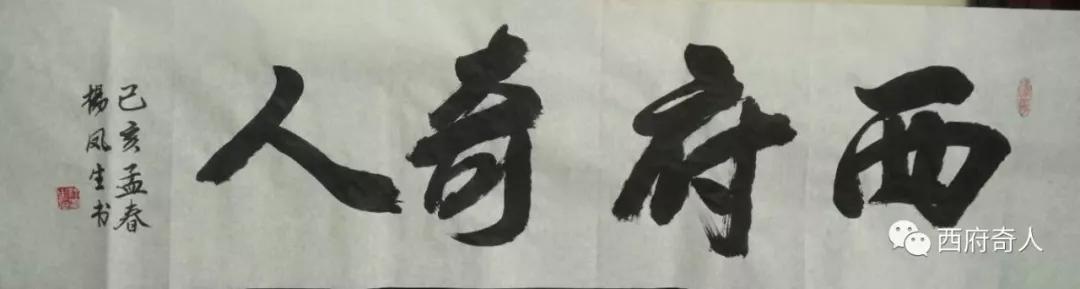 西府奇人
己亥孟春
楊凤生书
西府奇人